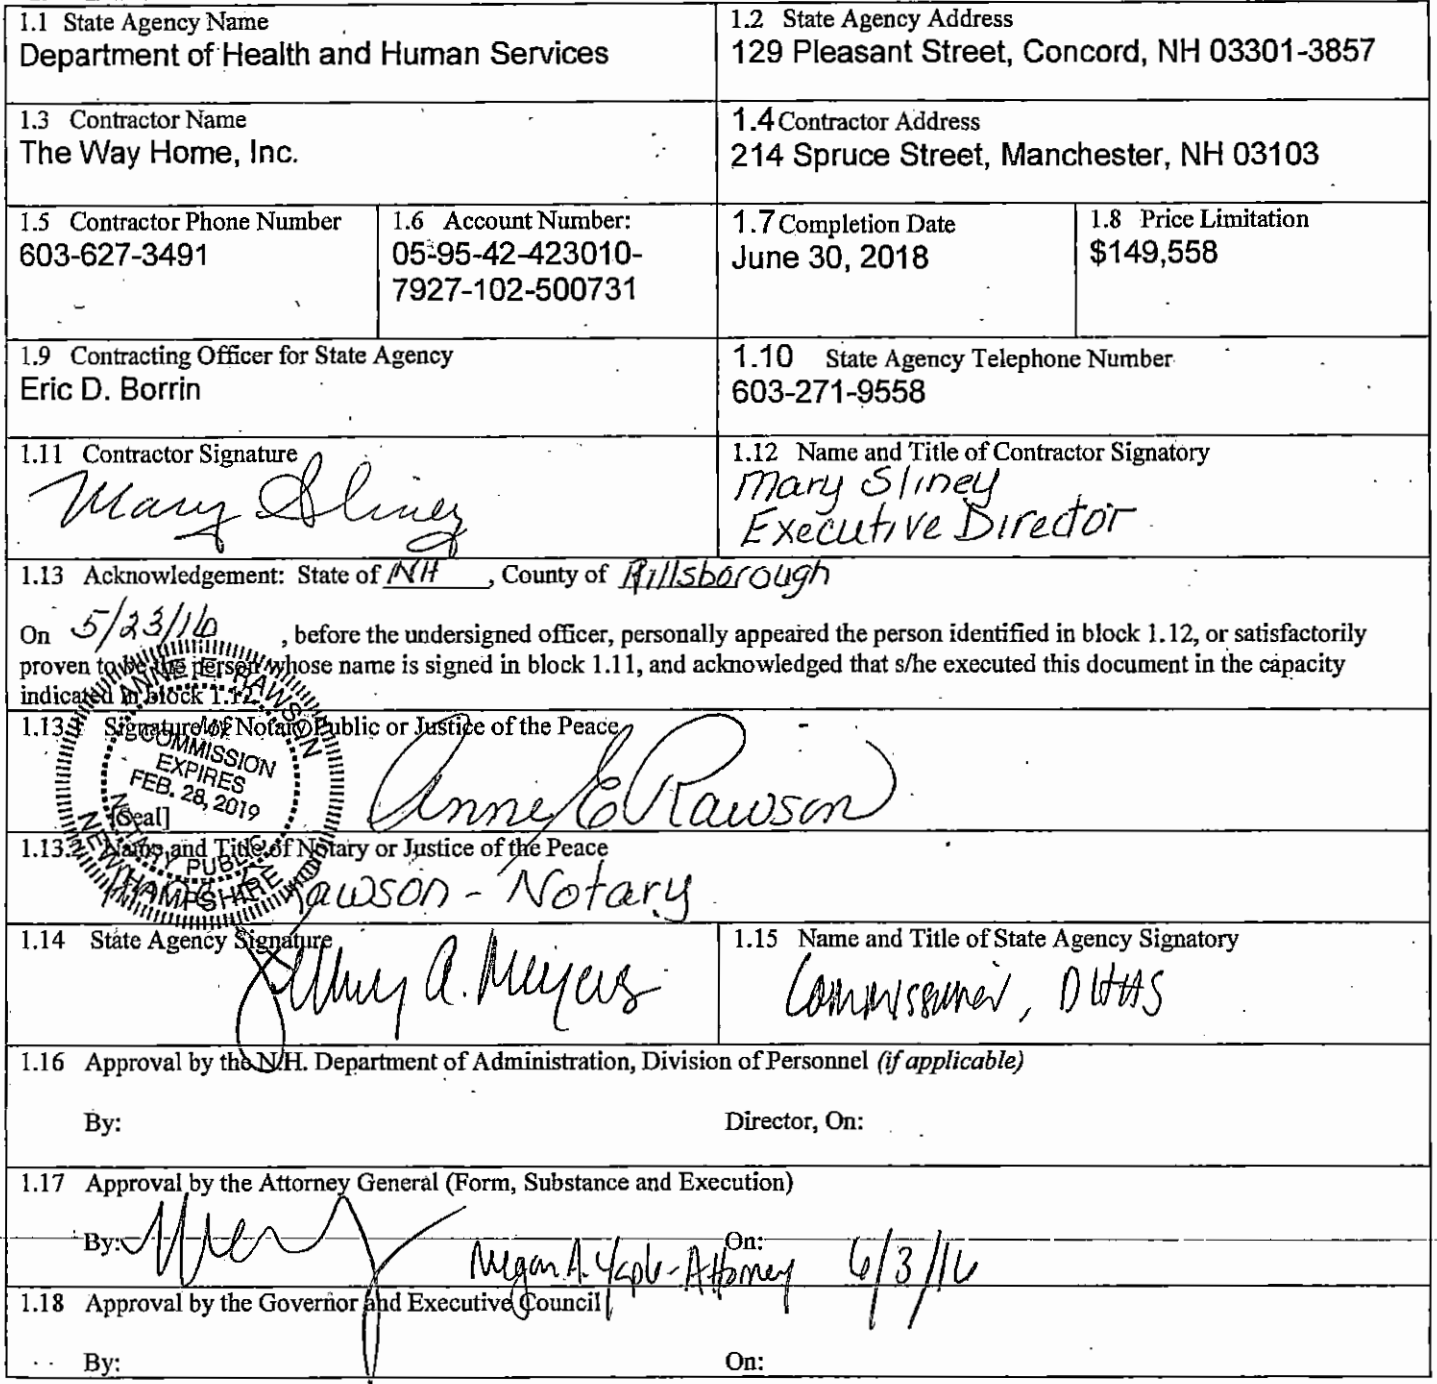 1.1 State Agency Name
Department of Health and Human Services
1.2 State Agency Address
129 Pleasant Street, Concord, NH 03301-3857
1.3 Contractor Name
The Way Home, Inc.
1.4 Contractor Address
214 Spruce Street, Manchester, NH 03103
1.5 Contractor Phone Number
603-627-3491
1.6 Account Number:
05-95-42-423010-
7927-102-500731
1.7 Completion Date
June 30, 2018
1.8 Price Limitation
$149,558
1.9 Contracting Officer for State Agency
Eric D. Borrin
1.10 State Agency Telephone Number
603-271-9558
1.11 Contractor Signature
Mary Sliney
1.12 Name and Title of Contractor Signatory
Mary Sliney
Executive Director
1.13 Acknowledgement: State of NH, County of Hillsborough
On 5/23/16, before the undersigned officer, personally appeared the person identified in block 1.12, or satisfactorily
proven to be the person whose name is signed in block 1.11, and acknowledged that s/he executed this document in the capacity
indicated in block 1.12.
1.13.1 Signature of Notary Public or Justice of the Peace
Anne E Rawson
ANNE E. RAWSON
MY
COMMISSION
EXPIRES
FEB. 28, 2019
NOTARY PUBLIC
NEW HAMPSHIRE
[Seal]
1.13.2 Name and Title of Notary or Justice of the Peace
Rawson - Notary
1.14 State Agency Signature
Jeffrey A. Meyers
1.15 Name and Title of State Agency Signatory
Commissioner, DHHS
1.16 Approval by the N.H. Department of Administration, Division of Personnel (if applicable)
By: Director, On:
1.17 Approval by the Attorney General (Form, Substance and Execution)
By: Megan A. Yaple - Attorney On: 6/3/16
1.18 Approval by the Governor and Executive Council
By: On: